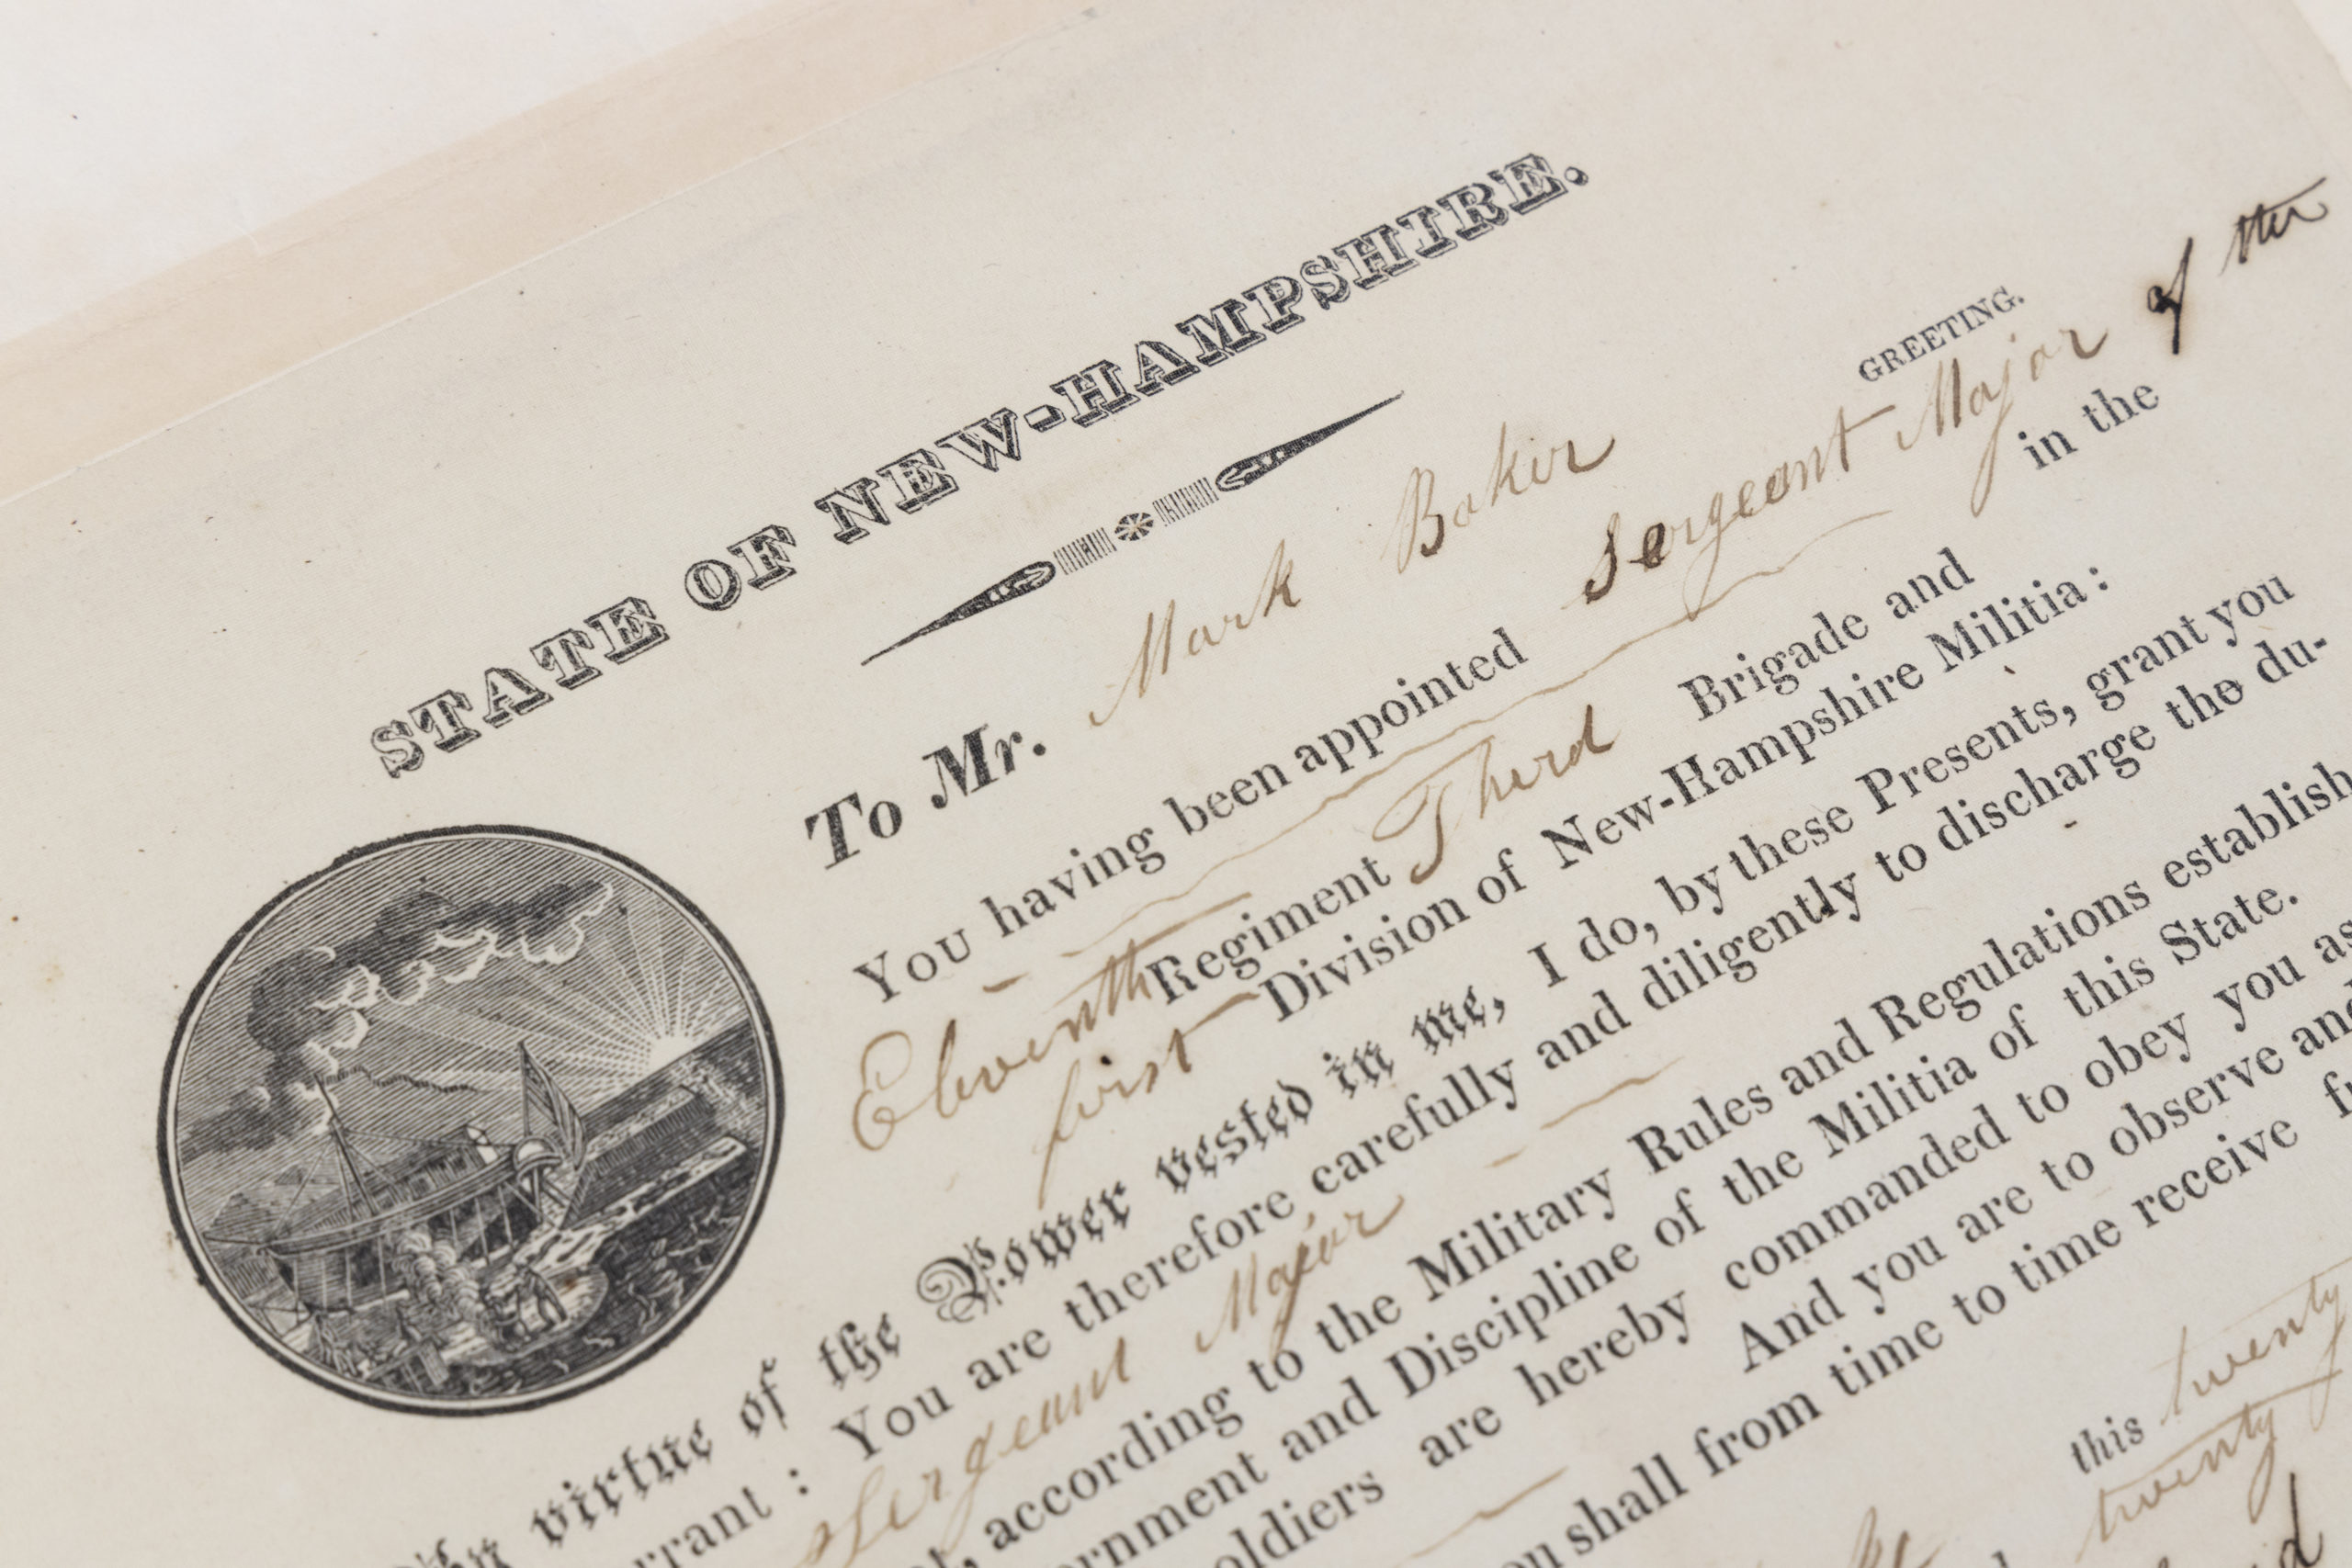 STATE OF NEW-HAMPSHIRE.
To Mr. Mark Baker GREETING.
You having been appointed Sergeant Major of the
Eleventh Regiment Third Brigade and in the
first Division of New-Hampshire Militia:
virtue of the Power vested in me, I do, by these Presents, grant you
rrant : You are therefore carefully and diligently to discharge the du-
Sergeant Major
, according to the Military Rules and Regulations establish
ernment and Discipline of the Militia of this State.
oldiers are hereby commanded to obey you as
And you are to observe and
shall from time to time receive
this twenty
twenty